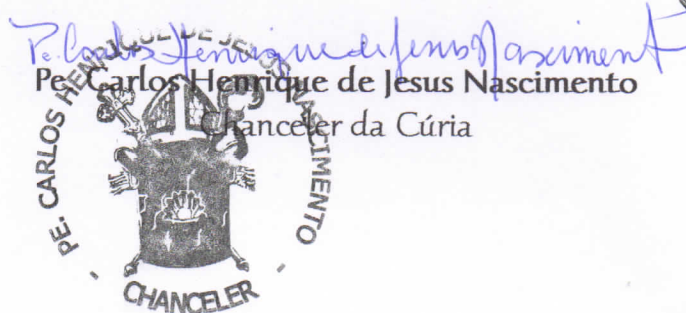 Pe. Carlos Henrique de Jesus Nascimento
Pe. Carlos Henrique de Jesus Nascimento
Chanceler da Cúria
PE. CARLOS HENRIQUE DE JESUS NASCIMENTO
- CHANCELER -